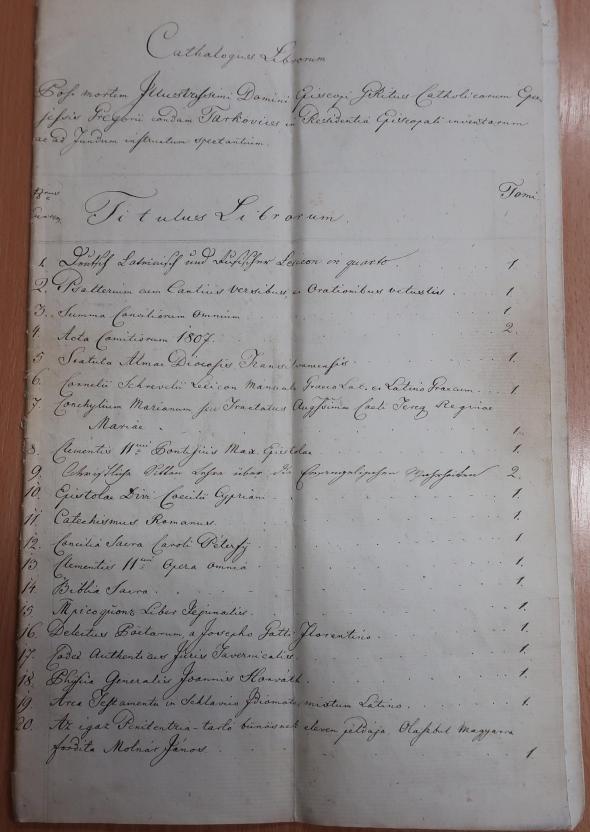 Cathalogus Librorum
Post mortem Illustrissimi Domini Episcopi G. Ritus Catholicorum Eper-
jessiensis Gregorii condam Tarkovics in Residentia Episcopali inventorum
ac ad Fundum instructum spectantium.
Tomi
Titulus Librorum.
1. Deutsch Lateinisch und Russischer Lexicon in quarto. 1.
2. Psalterium cum Canticis versibus, et Orationibus vetustis. 1
3. Summa Conciliorum Omnium 1
4. Acta Comitiorum 1807. 2.
5 Statuta Almae Diocesis Transilvaniensis 1.
6. Cornelii Schrevelii Lexicon Manuale Graeco Lat. et Latino Graecum. 1.
7. Conchylium Marianum seu Tractatus Caeli Reginae
Mariae. 1.
8. Clementis 11mi Pontificis Max. Epistolae 1.
9. Christliche Sitten Lehre über die Evangelischen Wahrheiten 2.
10. Epistolae Divi Coecilii Cypriani 1.
11. Catechismus Romanus. 1.
12. Concilia Sacra Caroli Péterfy 1.
13 Clementis 11mi Opera Omnia 1.
14. Biblia Sacra. 1.
15 Liber 1.
16. Delectus Poetarum, a Josepho Gatti Florentino. 1.
17. Codex Authenticus Juris Tavernicalis. 1.
18. Physica Generalis Joannis Horváth 1.
19. Arca Testamenti in Schlavico Idiomate, mixtum Latino. 1.
20. Az igaz Penitentzia-tartó bűnösnek eleven példája, Olaszbul Magyarra
fordíta Molnár János. 1.